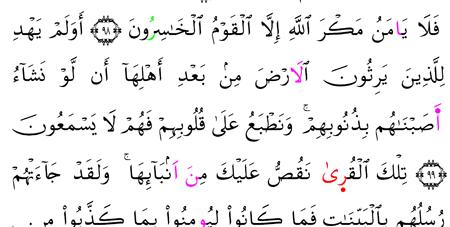 فَلَا يَامَنُ مَكْرَ اَللَّهِ إِلَّا اَلْقَوْمُ اُلْخَٰسِرُونَ ۝٩٨ أَوَلَمْ يَهْدِ
لِلَّذِينَ يَرِثُونَ اَلَارْضَ مِنۢ بَعْدِ أَهْلِهَا أَن لَّوْ نَشَآءُ
أَصَبْنَٰهُم بِذُنُوبِهِمْۚ وَنَطْبَعُ عَلَىٰ قُلُوبِهِمْ فَهُمْ لَا يَسْمَعُونَ
۝٩٩ تِلْكَ اَلْقُرىٰ نَقُصُّ عَلَيْكَ مِنَ اَنۢبَآئِهَاۚ وَلَقَدْ جَآءَتْهُمْ
رُسُلُهُم بِالْبَيِّنَٰتِ فَمَا كَانُواْ لِيُومِنُواْ بِمَا كَذَّبُواْ مِن